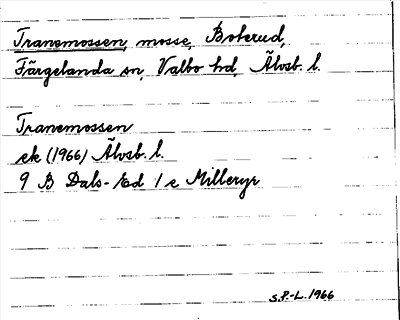 Tranemossen, mosse, Boterud,
Färgelanda sn, Valbo hd, Älvsb. l.
Tranemossen
ek (1966) Älvsb. l.
9 B Dals-Ed 1 c Milleryr
S.P.-L. 1966